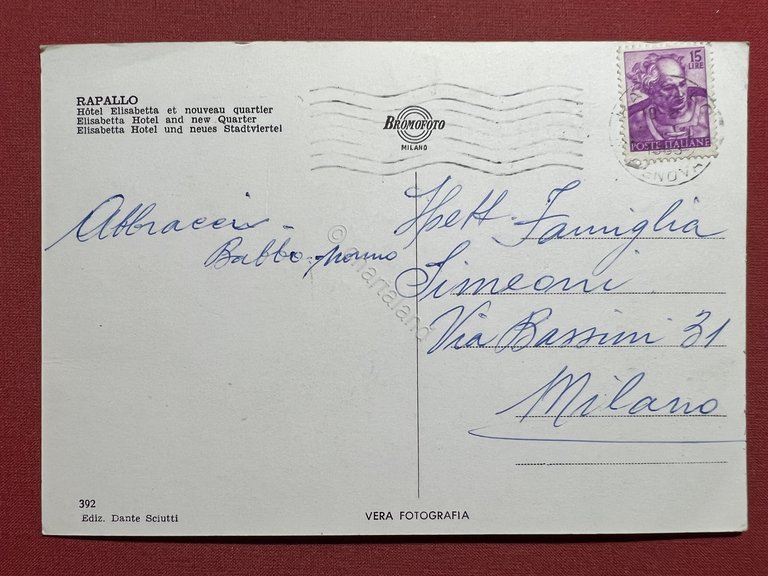 RAPALLO
Hôtel Elisabetta et nouveau quartier
Elisabetta Hotel and new Quarter
Elisabetta Hotel und neues Stadtviertel
BROMOFOTO
MILANO
15
LIRE
POSTE ITALIANE
GENOVA
Abbracci -
Babbo-nonno
Spett. Famiglia
Simeoni
Via Bassini 31
Milano
© martaland
392
Ediz. Dante Sciutti
VERA FOTOGRAFIA